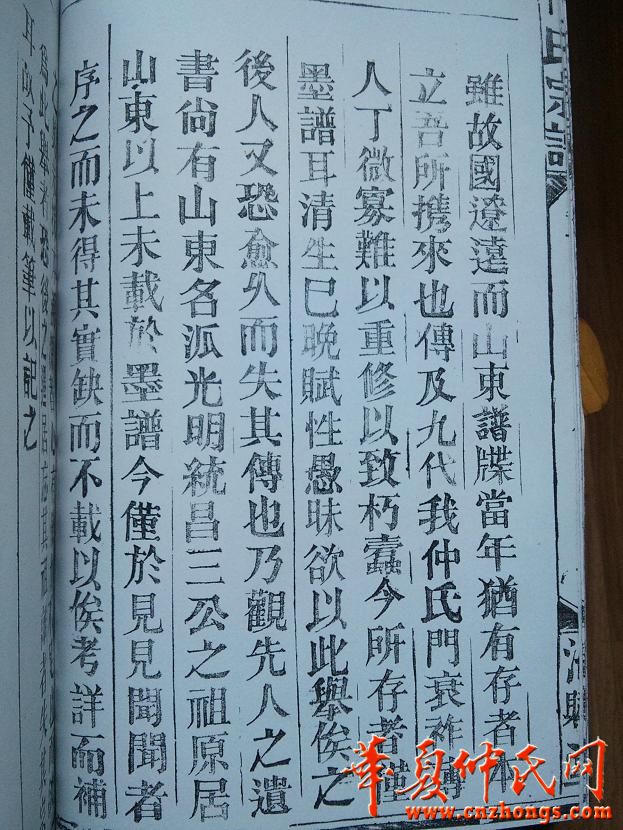 氏宗譜
雖故國遼遠而山東譜牒當年猶有存者本
立吾所携來也傳及九代我仲氏門衰祚薄
人丁微寡難以重修以致朽蠹今所存者僅
墨譜耳清生已晚賦性愚昧欲以此舉俟之
後人又恐愈久而失其傳也乃觀先人之遺
書尚有山東名派光明統昌三公之祖原居
山東以上未載於墨譜今僅於見見聞聞者
序之而未得其實缺而不載以俟考詳而補
耳故予僅載筆以記之
華夏仲氏网
www.cnzhongs.com